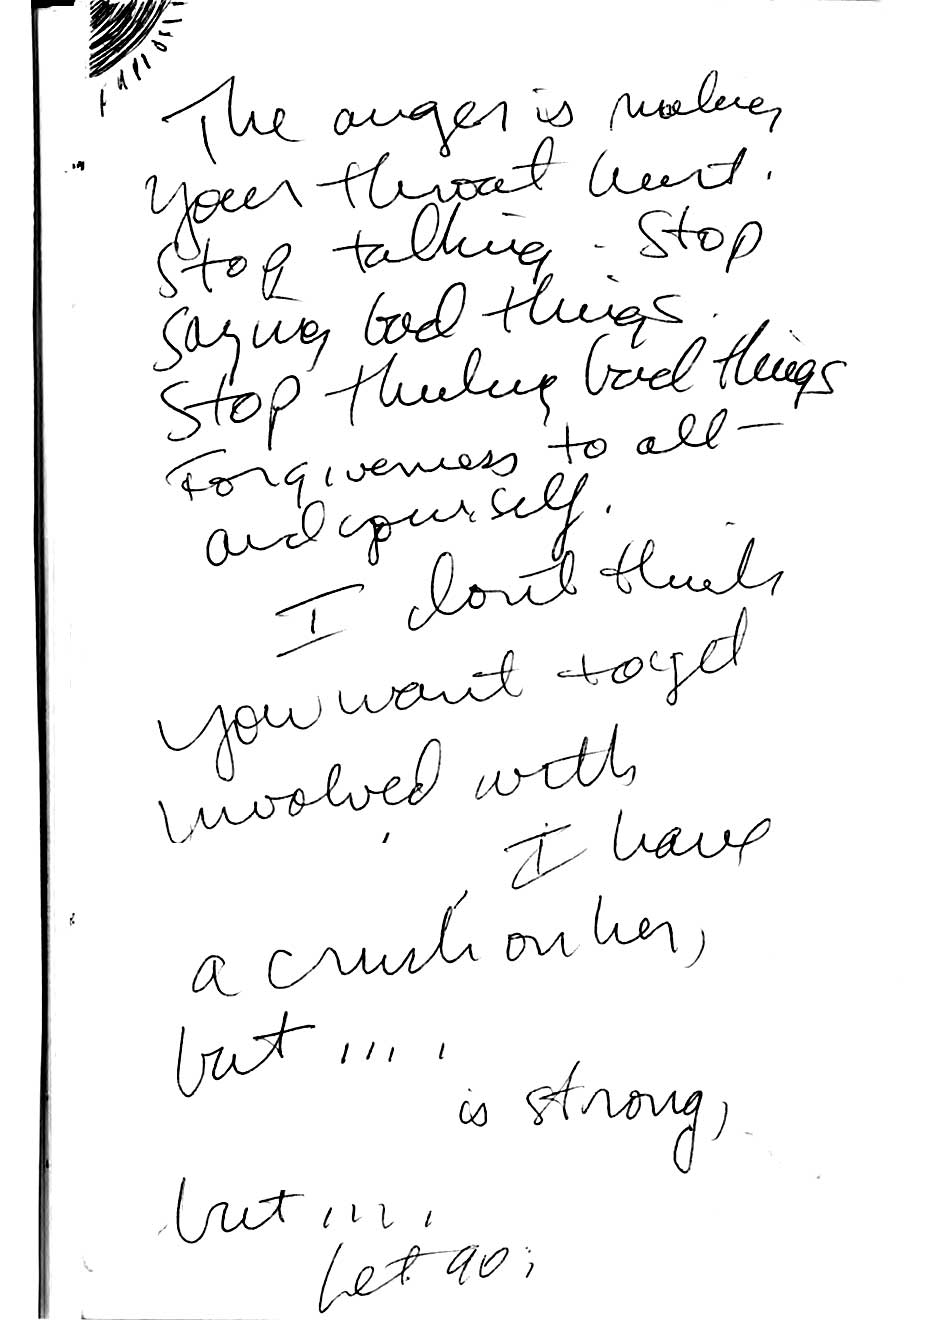 The anger is making
your throat hurt.
Stop talking. Stop
saying bad things.
Stop thinking bad things
Forgiveness to all —
and yourself.
I don't think
you want to get
involved with
. I have
a crush on her,
but ....
is strong,
but ....
Let go;